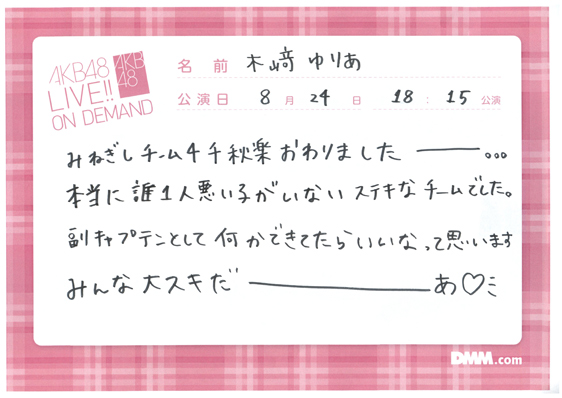 AKB48
LIVE!!
ON DEMAND
AKB
48
名前 木﨑ゆりあ
公演日 8月24日 18:15公演
みねぎしチーム4千秋楽おわりました――。。。
本当に誰1人悪い子がいないステキなチームでした。
副キャプテンとして何かできてたらいいなって思います
みんな大スキだ――――あ♡ミ
DMM.com